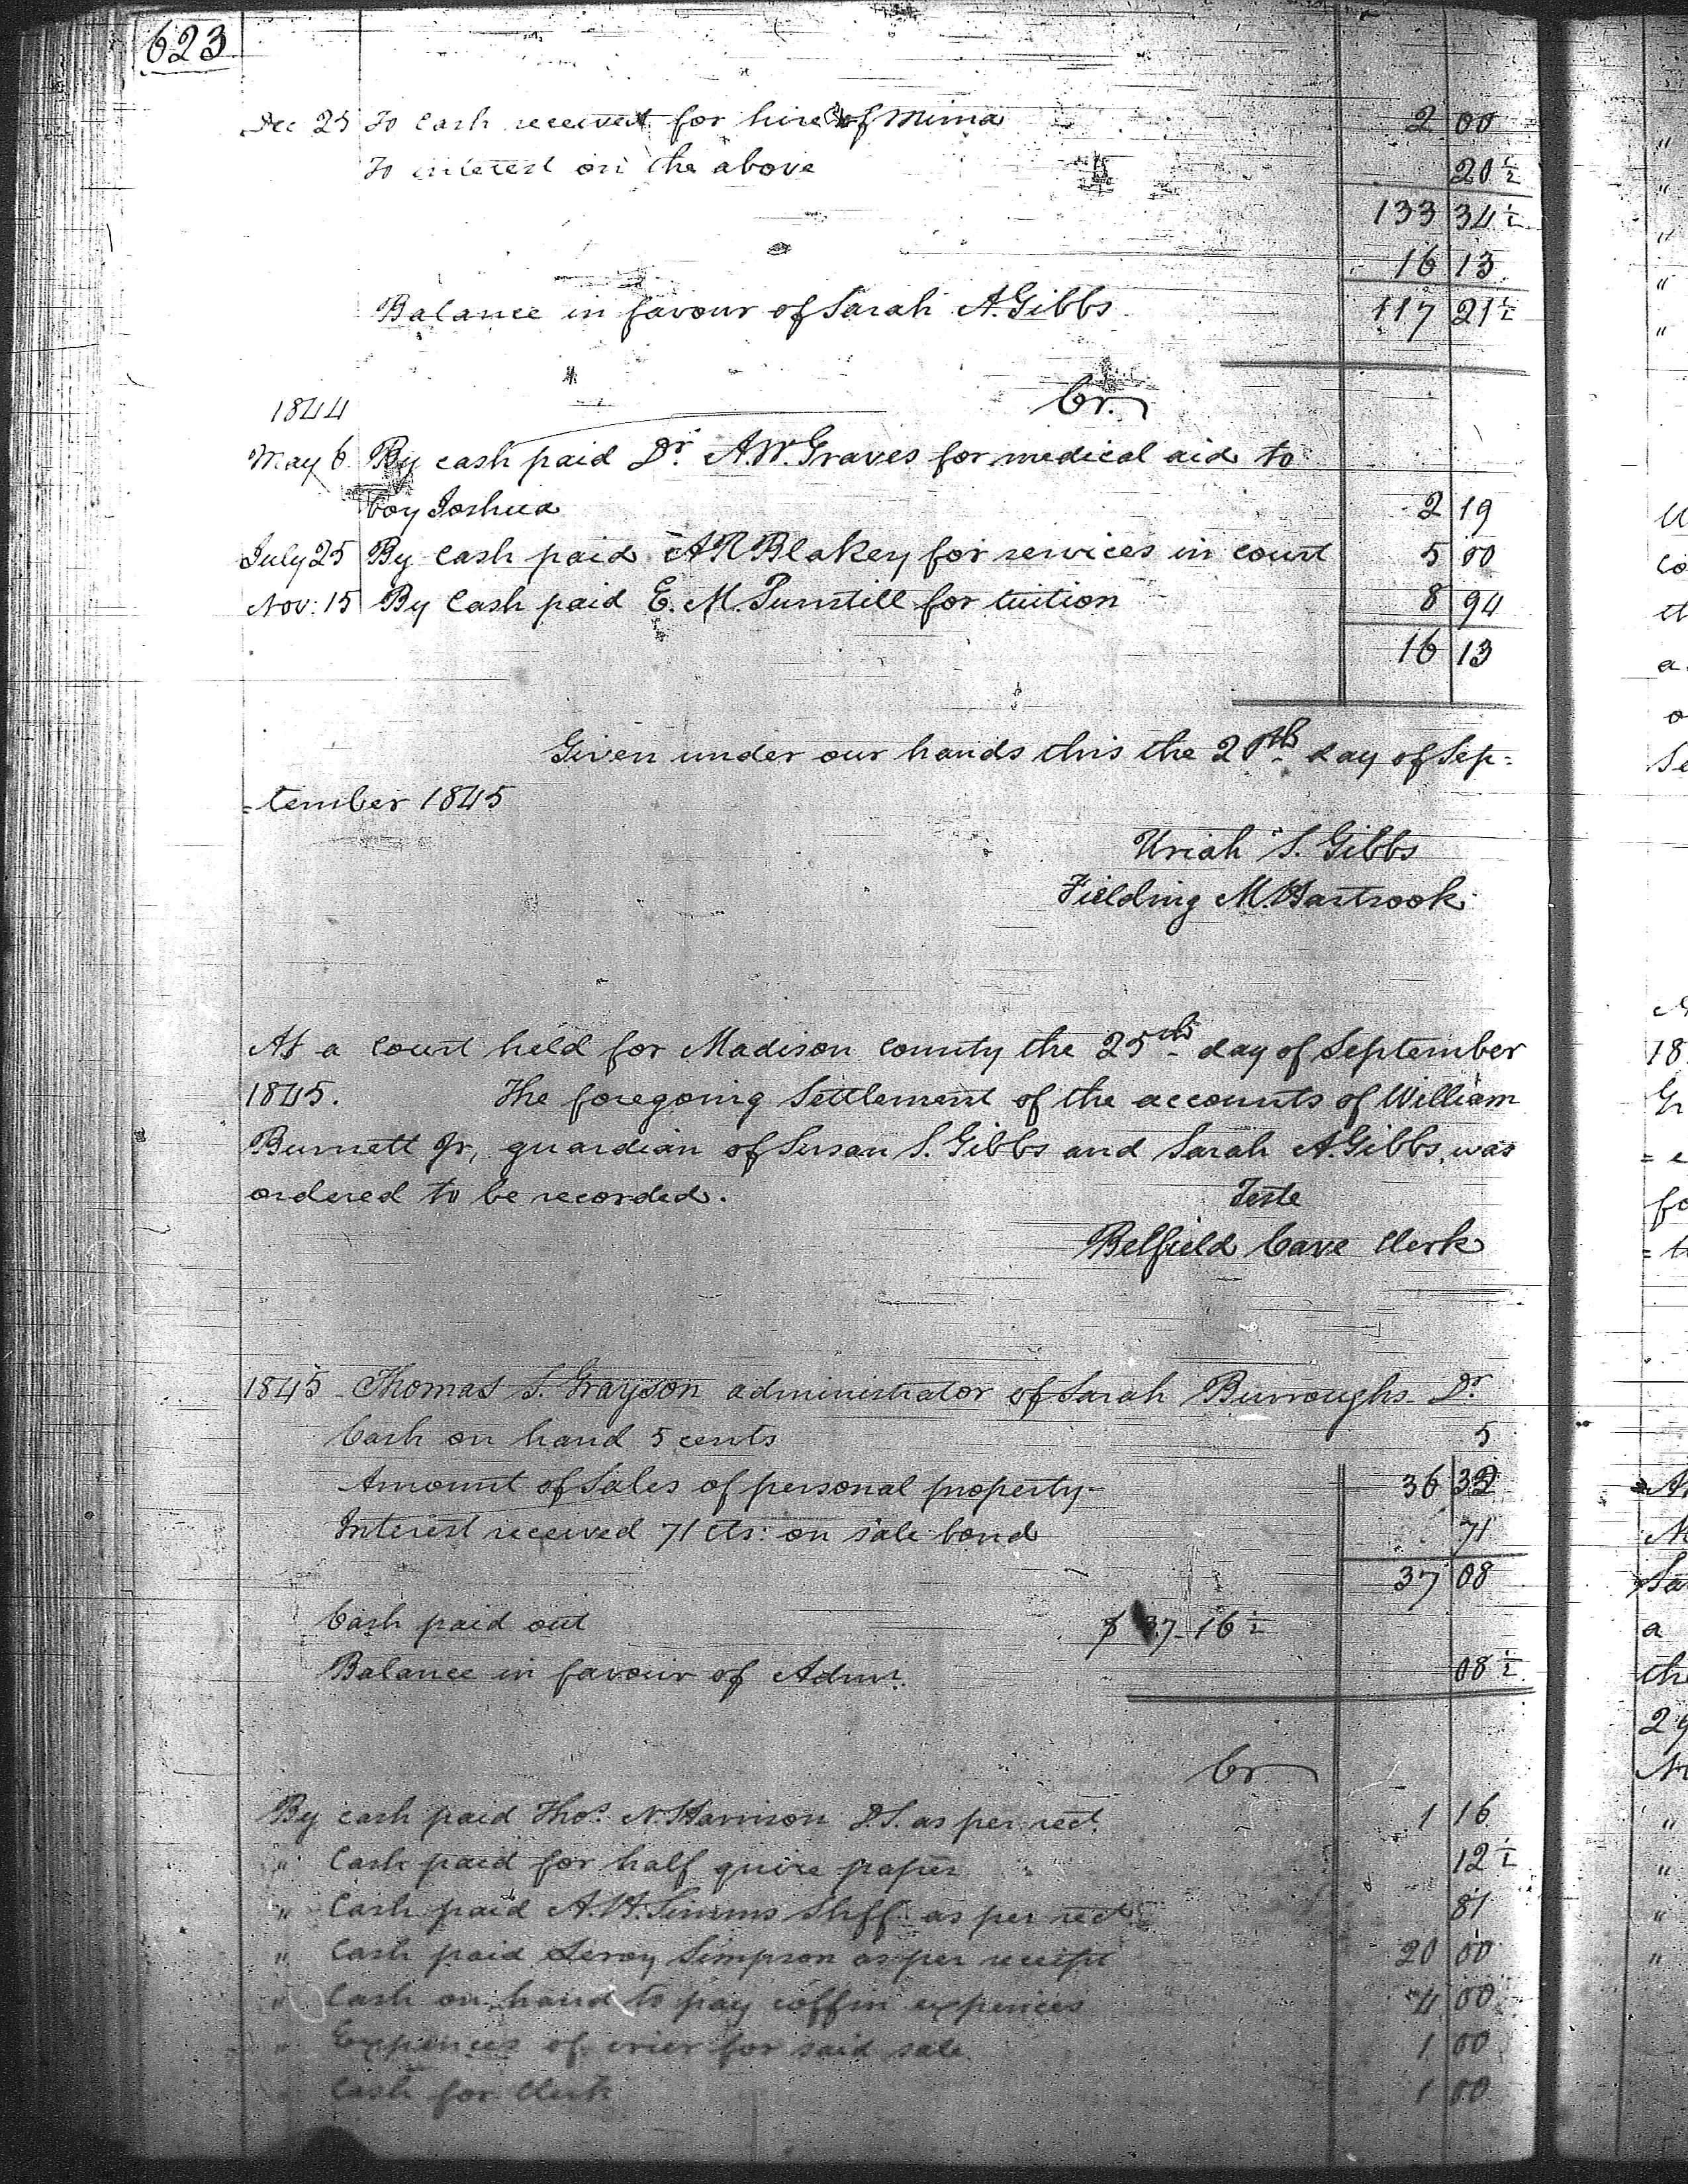 623
Dec 25 To Cash received for hire of Mima 2 00
To interest on the above 20½
133 34½
16 13
Balance in favour of Sarah A. Gibbs 117 21½
Cr.
1844
May 6 By cash paid Dr. A. W. Graves for medical aid to
boy Joshua 2 19
July 25 By Cash paid A R Blakey for services in court 5 00
Nov: 15 By Cash paid E. M. for tuition 8 94
16 13
Given under our hands this the 20th day of Sep=
=tember 1845
Uriah S. Gibbs
Fielding M.
At a Court held for Madison County the 25th day of September
1845. The foregoing Settlement of the accounts of William
Burnett Jr, guardian of Susan S. Gibbs and Sarah A. Gibbs, was
ordered to be recorded. Teste
Belfield Cave Clerk
1845 - Thomas S. Grayson administrator of Sarah Burroughs - Dr
Cash on hand 5 cents 5
Amount of Sales of personal property - 36 32
Interest received 71 cts: on sale bond 71
37 08
Cash paid out $ 37-16½
Balance in favour of Admr. 08½
Cr
By cash paid Thos. N. Harrison D.S. as per rect. 1 16
" Cash paid for half quire paper 12½
" Cash paid A. H. Simms Shff. as per rect 81
" Cash paid Leroy Simpson as per receipt 20 00
" Cash on hand to pay coffin expences 4 00
" Expences of crier for said sale 1 00
" Cash for Clerk 1 00